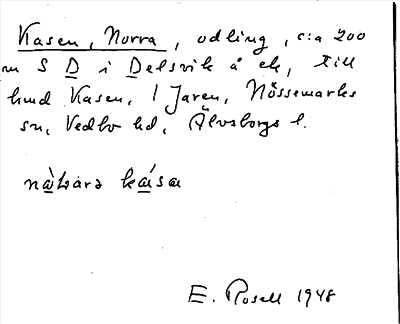 Kasen, Norra, odling, c:a 200
m S D i Delsvik å ek, till
hmd Kasen, 1 Jaren, Nössemarks
sn, Vedbo hd, Älvsborgs l.
kàsa
E. Rosell 1948